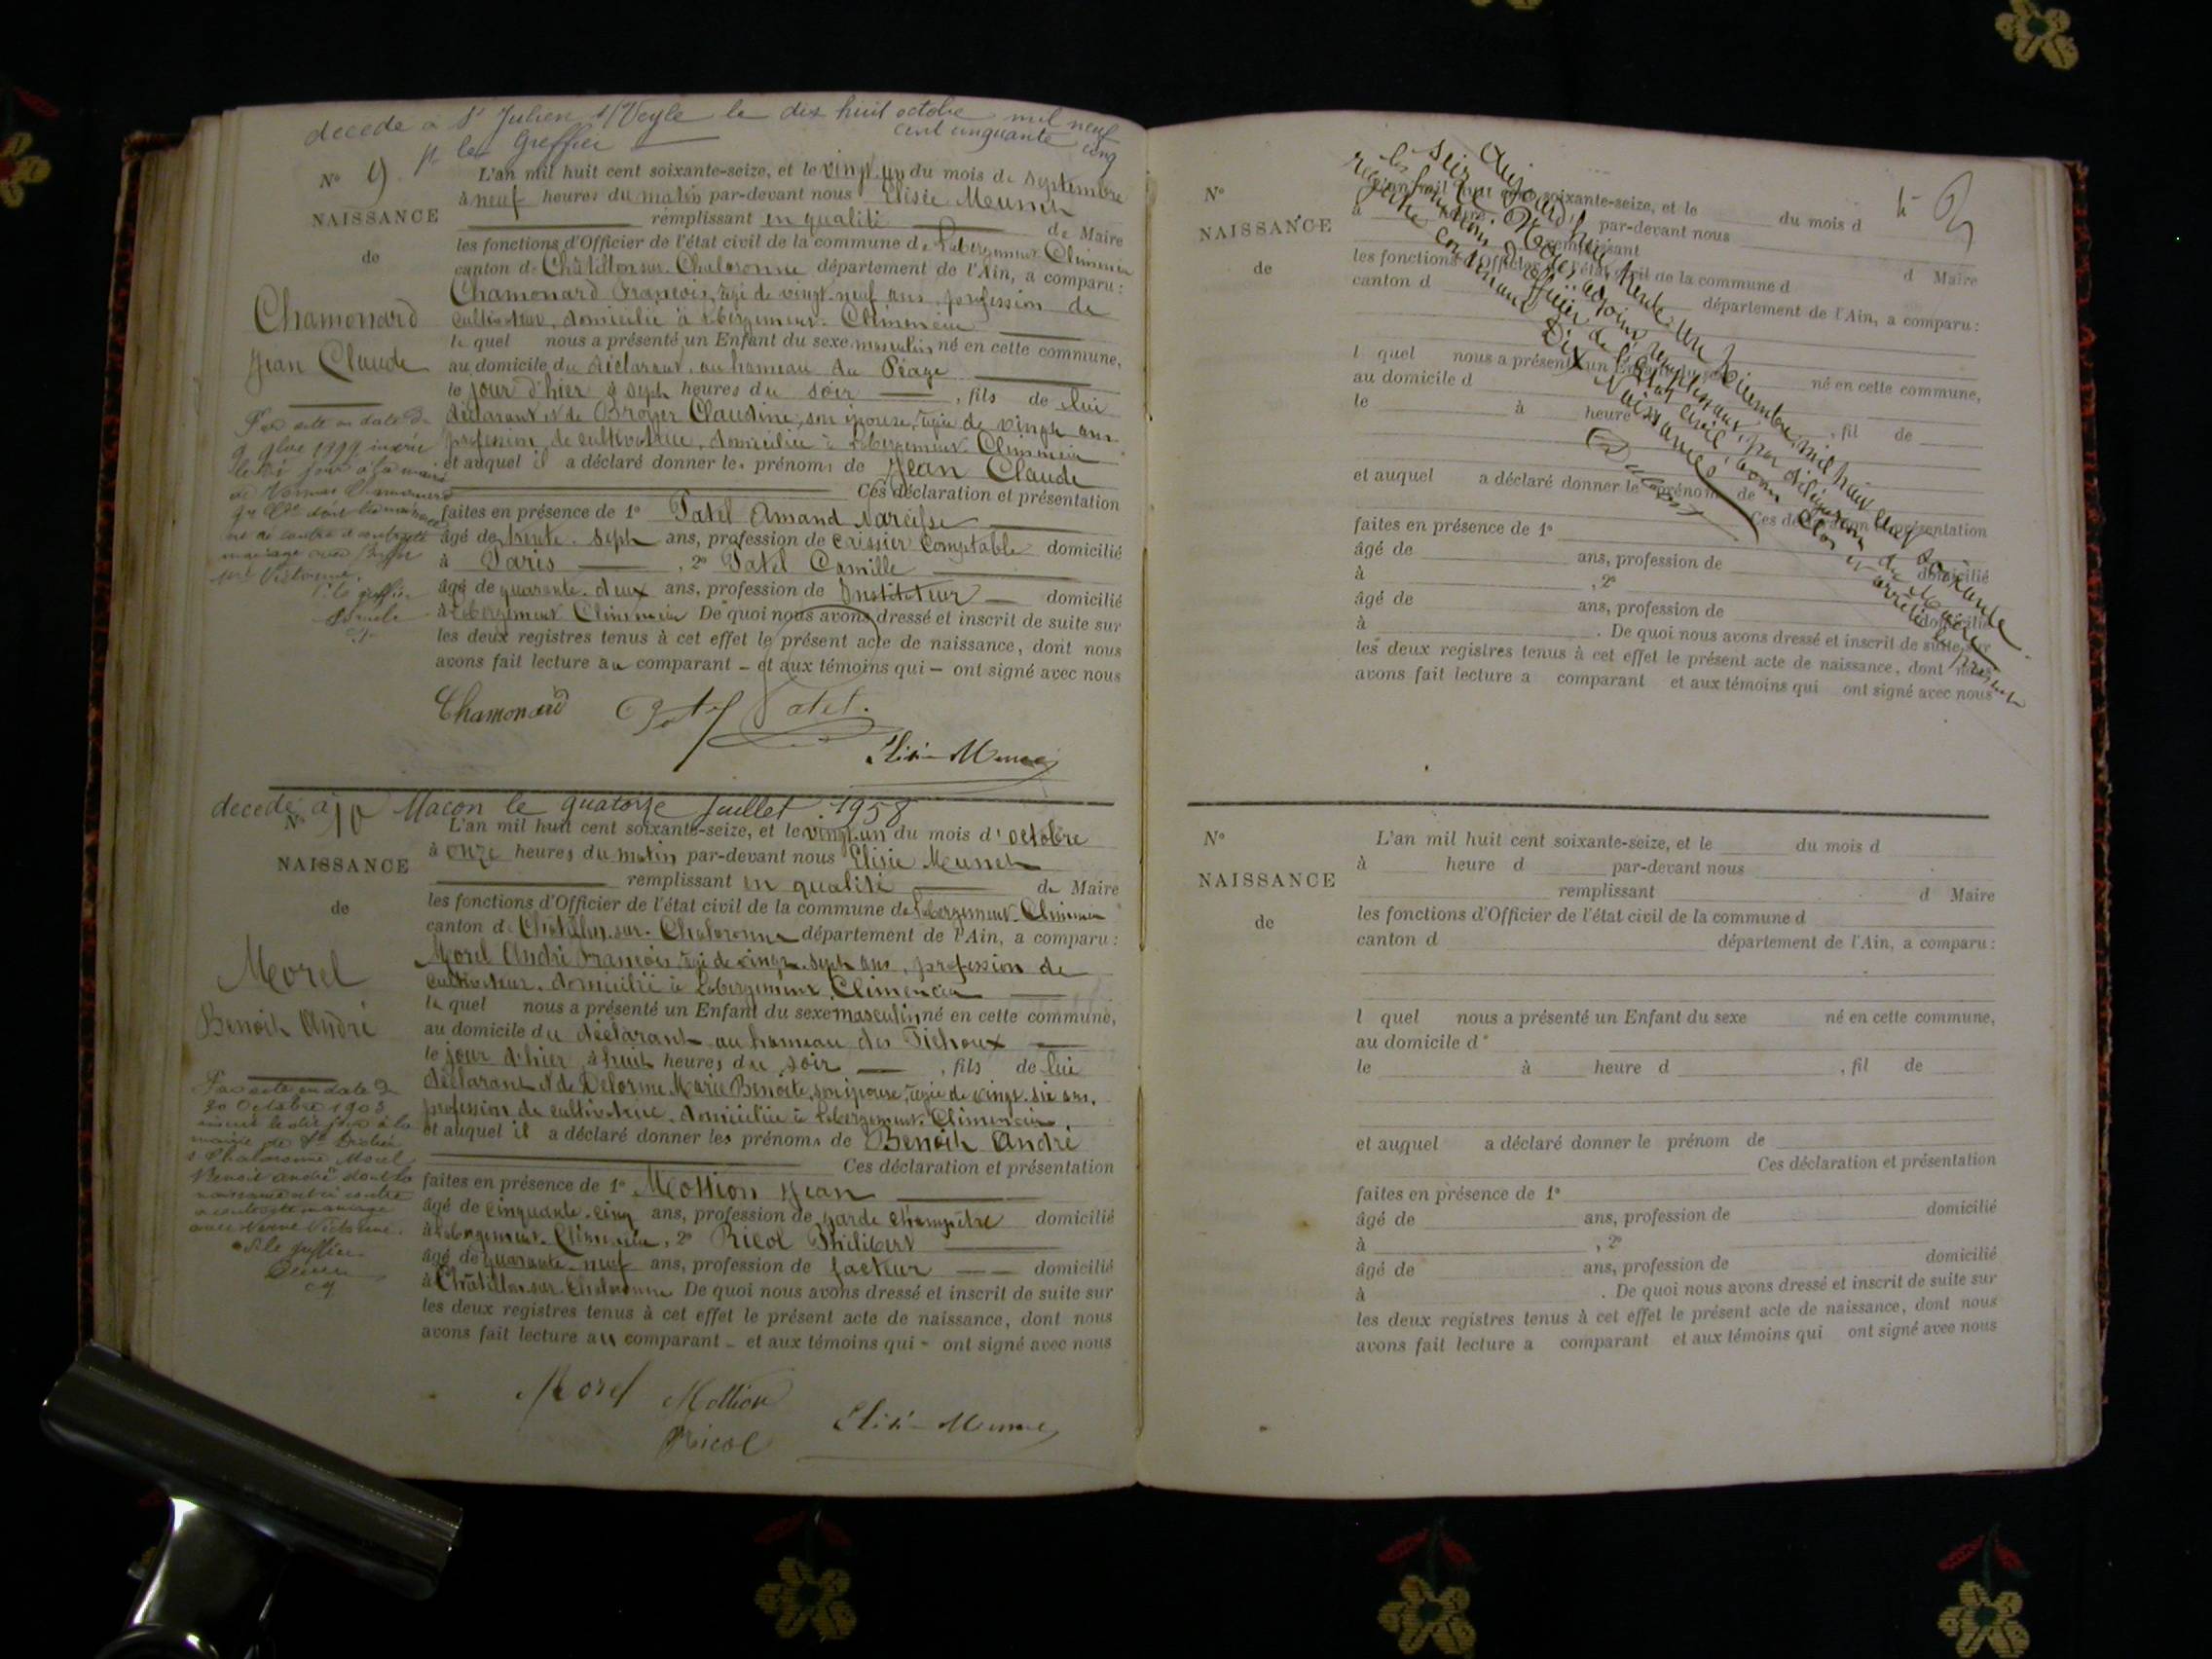 decede a St Julien s/Veyle le dix huit octobre mil neuf
cent cinquante cinq
le Greffier
N° 9.
NAISSANCE
de
Chamonard
Jean Claude
L'an mil huit cent soixante-seize, et le vingt-un du mois de Septembre
à neuf heures du matin par-devant nous Elisée Meunier
remplissant en qualité de Maire
les fonctions d'Officier de l'état civil de la commune de Labergement-Clémencia
canton de Châtillon-sur-Chalaronne département de l'Ain, a comparu :
Chamonard François, âgé de vingt-neuf ans, profession de
cultivateur, domicilié à Labergement-Clémencia
le quel nous a présenté un Enfant du sexe masculin né en cette commune,
au domicile du déclarant, au hameau du Péage
le jour d'hier à sept heures du soir , fils de lui
déclarant et de Broyer Claudine, son épouse, âgée de vingt ans
profession de cultivatrice, domiciliée à Labergement-Clémencia
et auquel il a déclaré donner les prénoms de Jean Claude
Ces déclaration et présentation
faites en présence de 1° Patel Amand Narcisse
âgé de trente-sept ans, profession de caissier comptable domicilié
à Paris , 2° Patel Camille
âgé de quarante-deux ans, profession de Instituteur domicilié
à Labergement Clémencia De quoi nous avons dressé et inscrit de suite sur
les deux registres tenus à cet effet le présent acte de naissance, dont nous
avons fait lecture au comparant – et aux témoins qui – ont signé avec nous
Chamonard Patel
decede à Macon le quatorze Juillet 1958
N° 10
NAISSANCE
de
Morel
Benoit André
Par acte en date du
30 Octobre 1903
inscrit le dit jour à la
mairie de St
s Chalaronne Morel
Benoit André dont la
naissance est ci contre
a contracté mariage
avec Victorine.
le greffier
L'an mil huit cent soixante-seize, et le vingt-un du mois d'octobre
à onze heures du matin par-devant nous Elisée Meunier
remplissant en qualité de Maire
les fonctions d'Officier de l'état civil de la commune de Labergement-Clémencia
canton de Châtillon-sur-Chalaronne département de l'Ain, a comparu :
Morel André François, âgé de vingt-sept ans, profession de
cultivateur, domicilié à Labergement Clémencia
le quel nous a présenté un Enfant du sexe masculin né en cette commune,
au domicile du déclarant au hameau des Tichoux
le jour d'hier, à huit heures du soir , fils de lui
déclarant et de Delorme Marie Benoite, son épouse, âgée de vingt-six ans,
profession de cultivatrice, domiciliée à Labergement-Clémencia
et auquel il a déclaré donner les prénoms de Benoit André
Ces déclaration et présentation
faites en présence de 1° Mottion Jean
âgé de cinquante-cinq ans, profession de garde champêtre domicilié
à Labergement-Clémencia, 2° Ricol Philibert
âgé de quarante-neuf ans, profession de facteur domicilié
à Châtillon-sur-Chalaronne De quoi nous avons dressé et inscrit de suite sur
les deux registres tenus à cet effet le présent acte de naissance, dont nous
avons fait lecture au comparant – et aux témoins qui – ont signé avec nous
Morel Mottion
Ricol
Aujourd'hui trente un Décembre mil huit cent soixante
seize
les fonctions d'officier de l'état civil, avons clos et arrêté le présent
registre contenant Dix Naissances
N°
NAISSANCE
de
L'an mil huit cent soixante-seize, et le du mois d
à heure par-devant nous
remplissant d Maire
les fonctions d'Officier de l'état civil de la commune d
canton d département de l'Ain, a comparu :
l quel nous a présenté un Enfant du sexe né en cette commune,
au domicile d
le à heure , fil de
et auquel a déclaré donner le prénom de
Ces déclaration et présentation
faites en présence de 1°
âgé de ans, profession de domicilié
à , 2°
âgé de ans, profession de domicilié
à . De quoi nous avons dressé et inscrit de suite sur
les deux registres tenus à cet effet le présent acte de naissance, dont nous
avons fait lecture a comparant et aux témoins qui ont signé avec nous
N°
NAISSANCE
de
L'an mil huit cent soixante-seize, et le du mois d
à heure d par-devant nous
remplissant d Maire
les fonctions d'Officier de l'état civil de la commune d
canton d département de l'Ain, a comparu :
l quel nous a présenté un Enfant du sexe né en cette commune,
au domicile d
le à heure d , fil de
et auquel a déclaré donner le prénom de
Ces déclaration et présentation
faites en présence de 1°
âgé de ans, profession de domicilié
à , 2°
âgé de ans, profession de domicilié
à . De quoi nous avons dressé et inscrit de suite sur
les deux registres tenus à cet effet le présent acte de naissance, dont nous
avons fait lecture a comparant et aux témoins qui ont signé avec nous